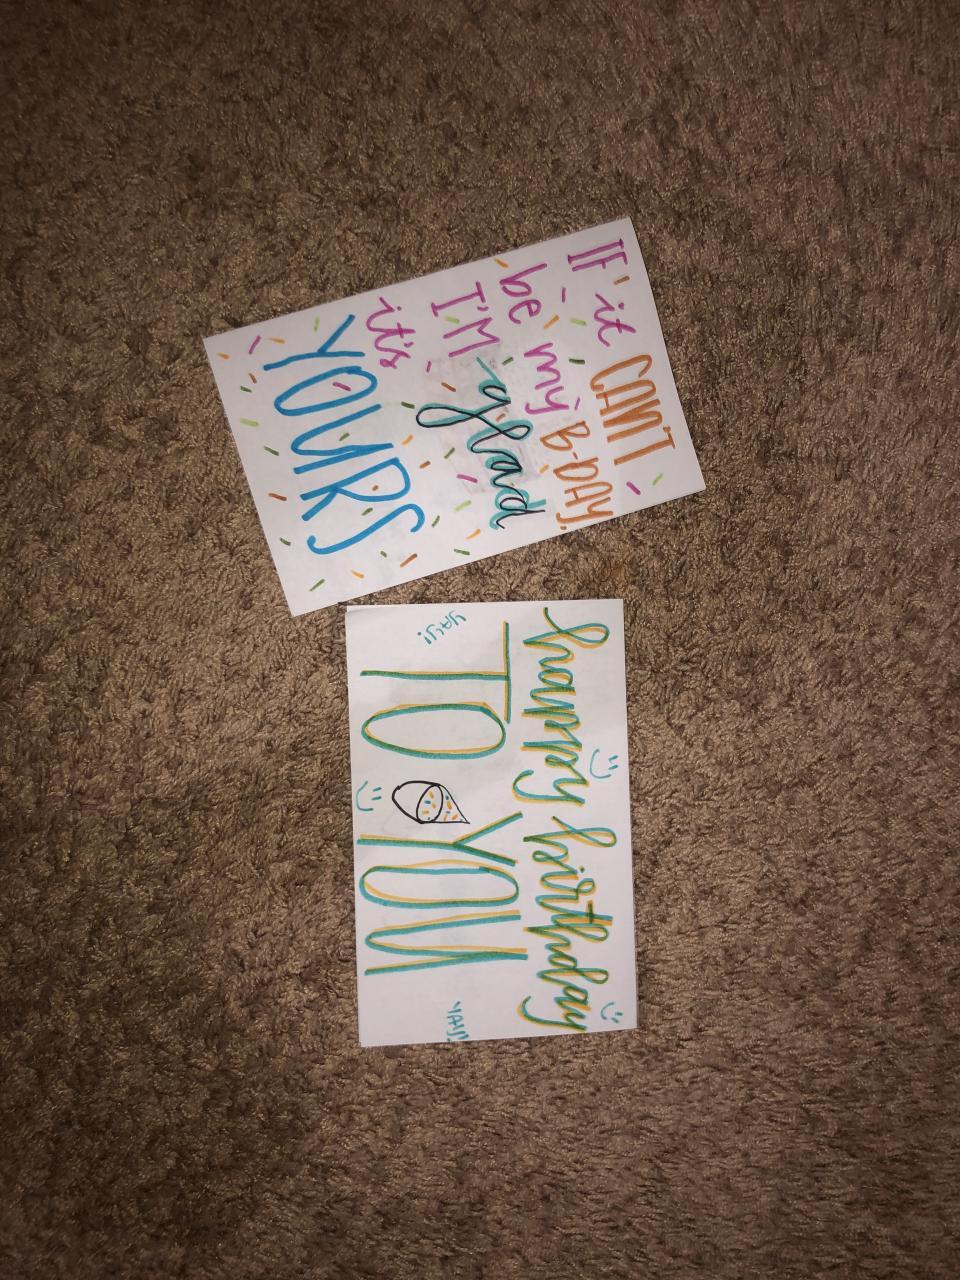 IF it CAN'T
be my B-DAY,
I'M glad
it's
YOURS
happy birthday
YAY!
TO YOU
YAY!